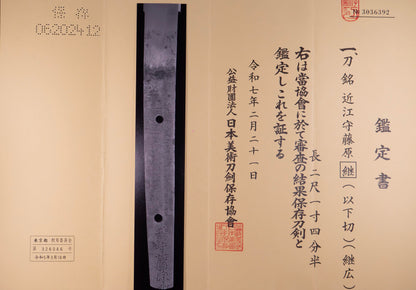 № 3036392
鑑定書
一、刀 銘 近江守藤原継(以下切)(継広)
長 二尺一寸四分半
右は當協會に於て審査の結果保存刀剣と
鑑定しこれを証する
令和七年二月二十一日
公益財團法人 日本美術刀剣保存協會
保存
06202412
東京都 教育委員会